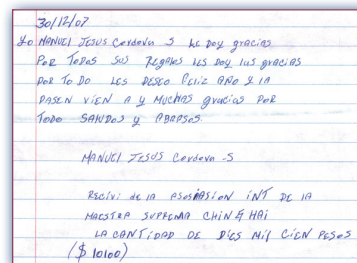 30/12/07
Yo MANUEL JESUS Cordova S LE DOY gracias
POR TODOS SUS REgalos LES DOY LUS gracias
POR TO DO LES DESEO FELIZ AÑO Y LA
PASEN VIEN A Y MUCHAS gracias POR
TODO SALUDOS Y ABRASOS
MANUEL JESUS Cordova -S
RECIVI DE LA ASOSIASION INT DE LA
MAESTRA SUPREMA CHING HAI
LA CANTIDAD DE DIES MIL CIEN PESOS
($ 10100)